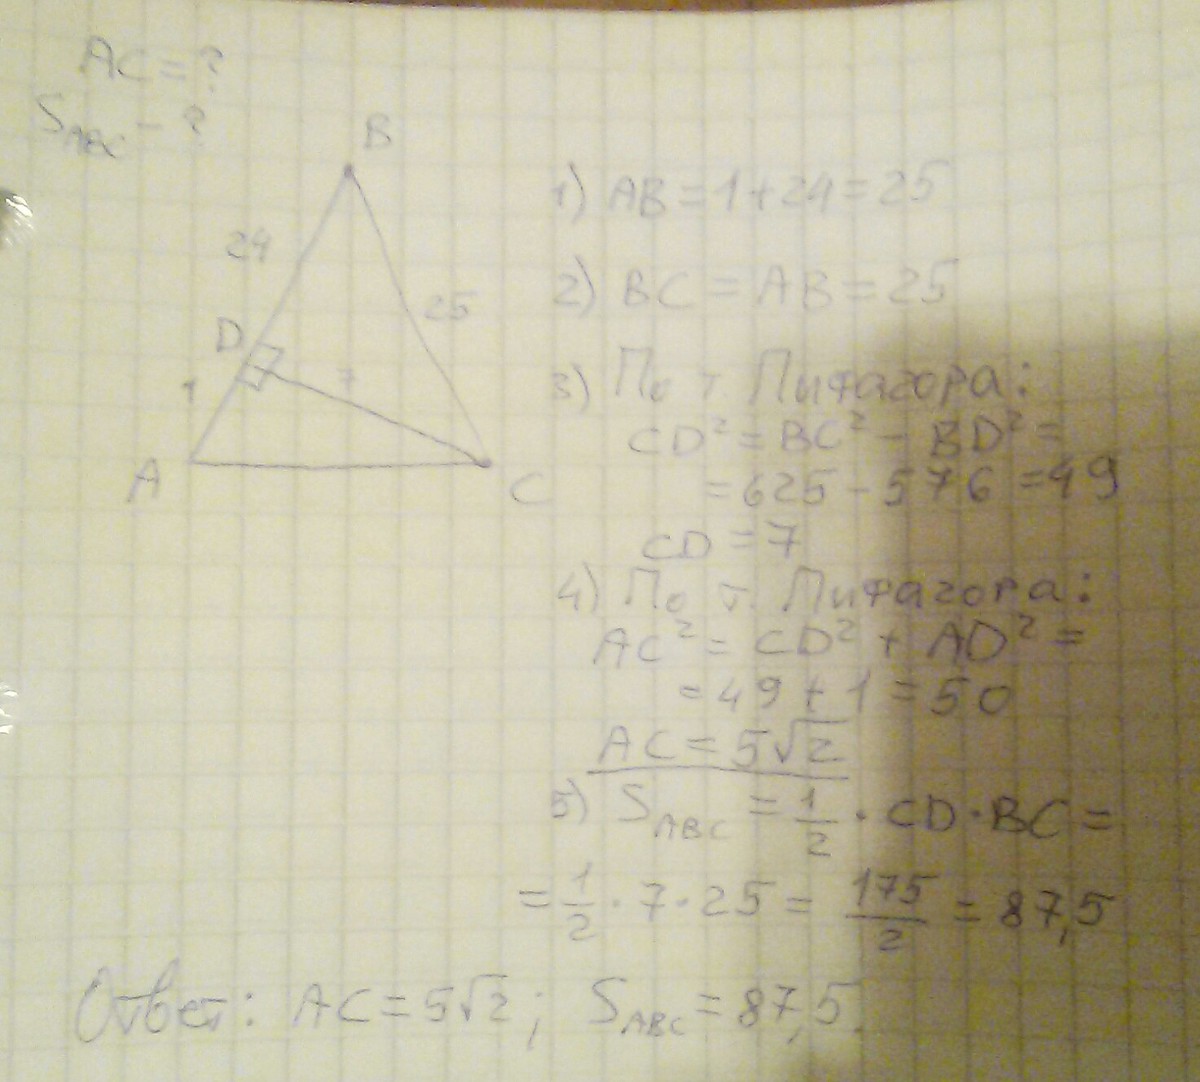 AC = ?
S_ABC - ?
B
24
25
D
7
1
A
C
1) AB = 1 + 24 = 25
2) BC = AB = 25
3) По т Пифагора:
CD² = BC² - BD² =
= 625 - 576 = 49
CD = 7
4) По т. Пифагора:
AC² = CD² + AD² =
= 49 + 1 = 50
AC = 5√2
5) S_ABC = 1/2 · CD · BC =
= 1/2 · 7 · 25 = 175/2 = 87,5
Ответ: AC = 5√2; S_ABC = 87,5.